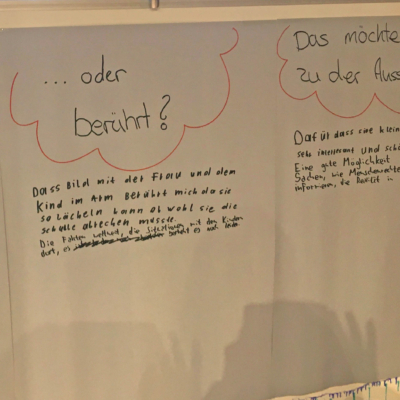 ... oder
berührt?
Dass Bild mit der Frau und dem
Kind im Arm Berührt mich da sie
so Lächeln kann ob wohl sie die
schule abrechen musste.
Die Fakten weltweit, die Situationen mit den Kindern
dort, es geht es
Das möchte
zu der Auss
Dafür dass sie klein
sehr interresant und schö
Eine gute Möglichkeit
Sachen, wie Menschenrechte
informieren, die